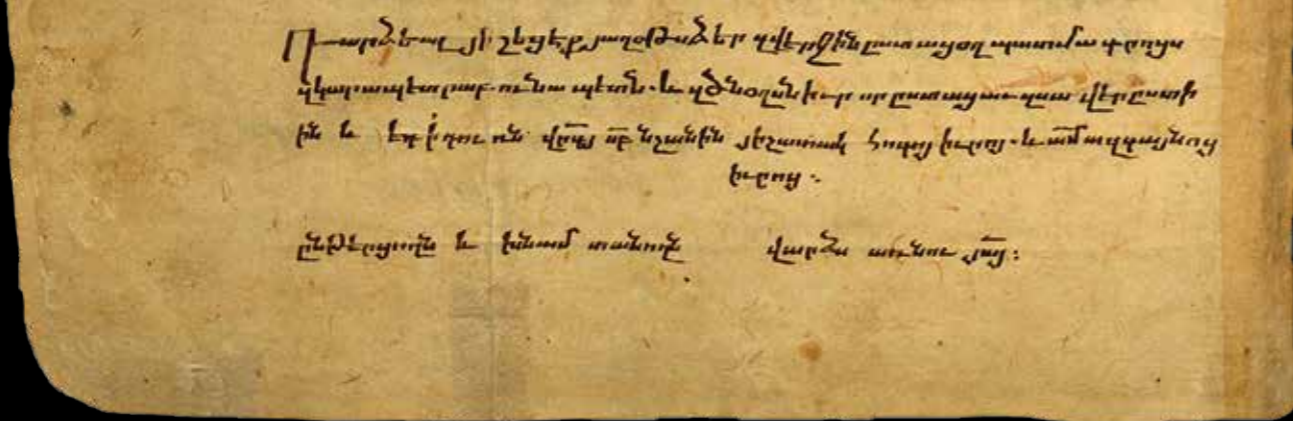 Դարձեալ յիշեցէք յաղօթս ձեր զվերջին ըստացօղ պատմագրոյս
զկարապետ րաբունապետն. և զծնօղսն իւր որ ըստացաւ զսա վերըստի
ին և եդ ի դուռն վրպյ սբ նշանին յիշատակ հոգոյ իւրոյ. և ամ ազգայնոց
իւրոց։
ընթերցողն և խնամ տանողն վարձս առնու յայ։